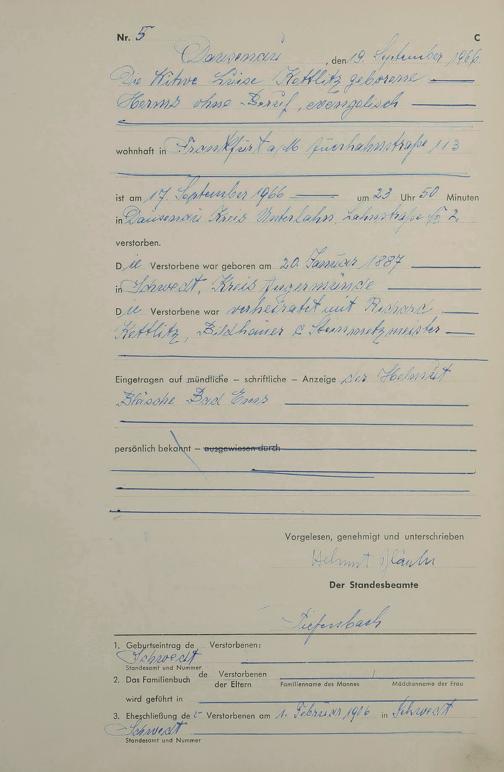 Nr. 5 C
Dausenau, den 19. September 1966
Die Witwe Luise Kettlitz geborene
Herms ohne Beruf, evangelisch
wohnhaft in Frankfurt a/M 113
ist am 17. September 1966 um 23 Uhr 50 Minuten
in Dausenau Kreis Unterlahn, Lahnstraße No 2
verstorben.
Die Verstorbene war geboren am 20. Januar 1887
in Schwedt, Kreis Angermünde
Die Verstorbene war verheiratet mit Richard
Kettlitz, Bildhauer & Steinmetzmeister
Eingetragen auf mündliche – schriftliche – Anzeige des Helmut
Bläsche Bad Ems
persönlich bekannt – ausgewiesen durch
Vorgelesen, genehmigt und unterschrieben
Helmut
Der Standesbeamte
Tiefenbach
1. Geburtseintrag de Verstorbenen:
Schwedt
Standesamt und Nummer
2. Das Familienbuch de Verstorbenen
der Eltern Familienname des Mannes Mädchenname der Frau
wird geführt in
3. Eheschließung der Verstorbenen am 1. Februar 1906 in Schwedt
Schwedt
Standesamt und Nummer